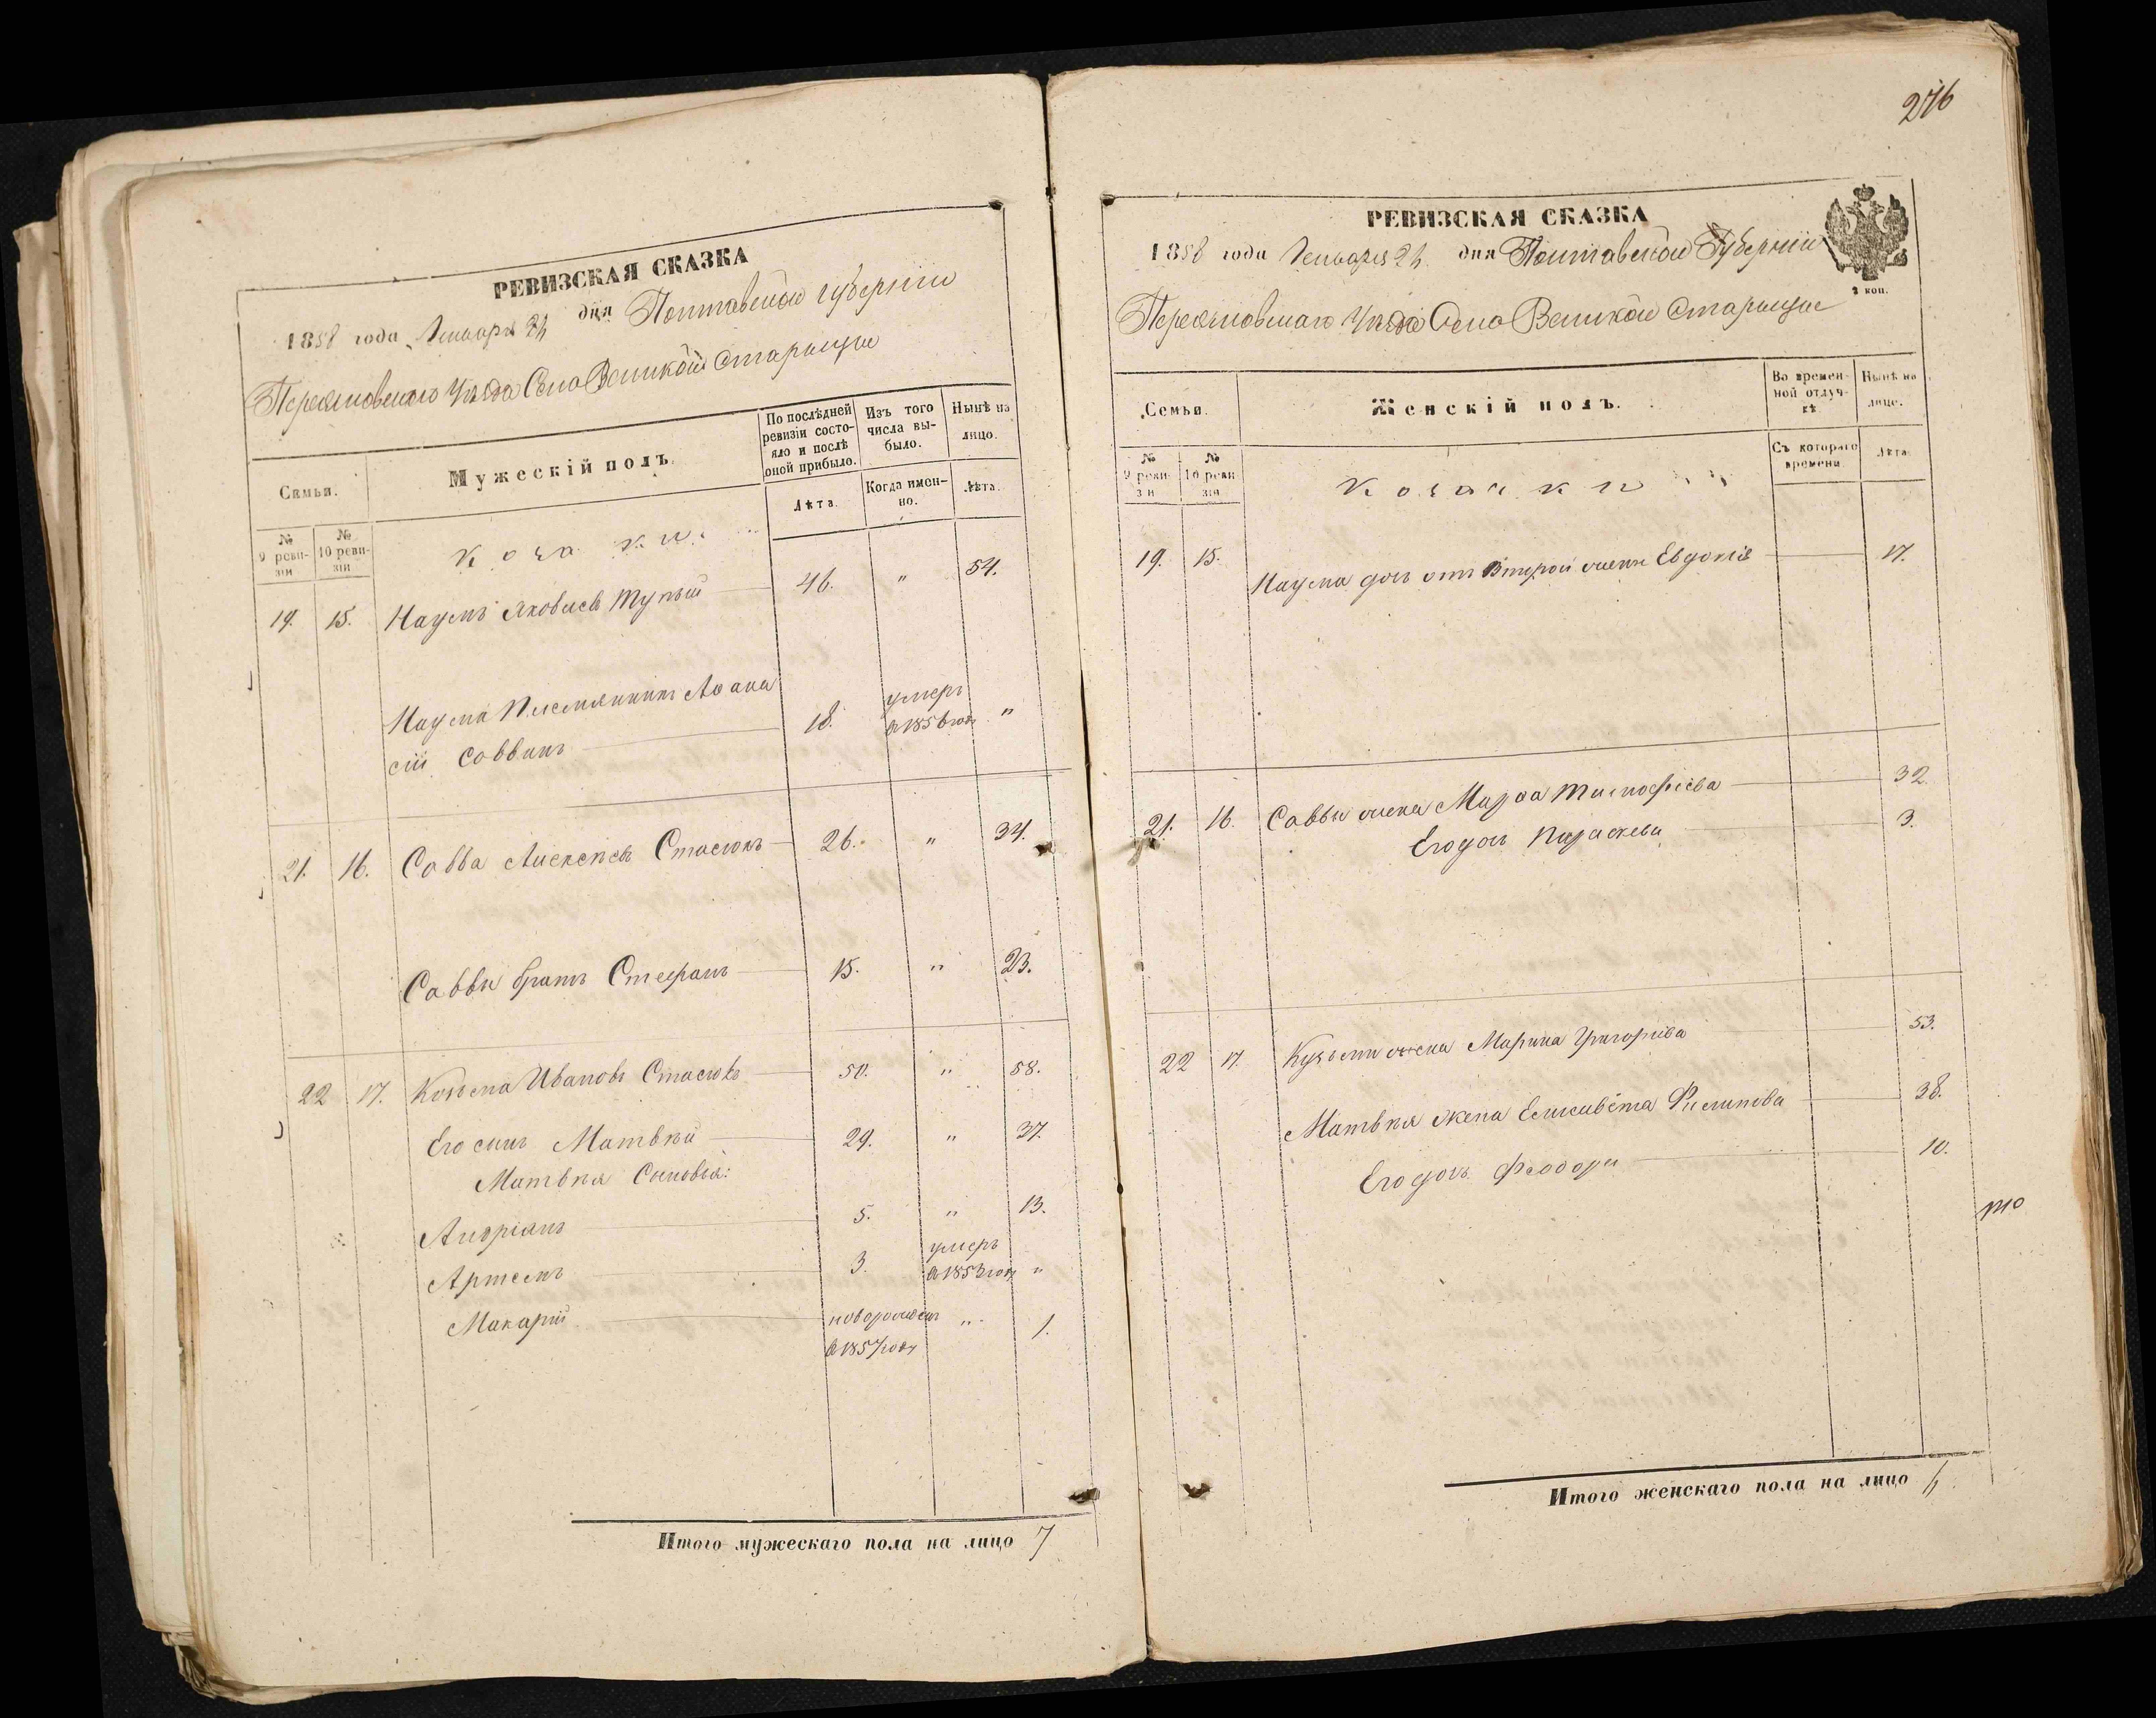 РЕВИЗСКАЯ СКАЗКА
1858 года Генваря 24 дня Полтавской губерніи
Переяславскаго Уѣзда Села Великой Старицы
Семьи.
Мужескій полъ.
По послѣдней ревизіи состояло и послѣ оной прибыло.
Изъ того числа выбыло.
Нынѣ на лицо.
№ 9 ревизіи
№ 10 ревизіи
Козаки.
Лѣта.
Когда именно.
Лѣта.
19. 15. Наумъ Яковлевъ Тупый 46. " 54.
Наума племянникъ Аѳана
сій Саввинъ 18. умеръ в 1856 годѣ "
21. 16. Савва Алексѣевъ Стасюкъ 26. " 34.
Саввы братъ Стефанъ 15. " 23.
22 17. Козьма Ивановъ Стасюкъ 50. " 58.
Его сынъ Матвѣй 29. " 37.
Матвѣя Сыновья:
Андріанъ 5. " 13.
Артемъ 3. умеръ в 1853 годѣ "
Макарій новорожденъ в 1857 годѣ " 1.
Итого мужескаго пола на лицо 7
276
РЕВИЗСКАЯ СКАЗКА
1858 года Генваря 24 дня Полтавской Губерніи
2 коп.
Переяславскаго Уѣзда Села Великой Старицы
Семьи.
Женскій полъ.
Во временной отлучкѣ
Нынѣ на лице.
№ 9 ревизіи
№ 10 ревизіи
Козачки
Съ котораго времени.
Лѣта.
19. 15. Наума дочь отъ Второй жены Евдокія 17.
21. 16. Саввы жена Марѳа Тимофѣева 32.
Его дочь Параскева 3.
22 17. Кузьмы жена Марина Григорьева 53.
Матвѣя жена Елисавета Филипова 38.
Его дочь Феодора 10.
Итого женскаго пола на лицо 6